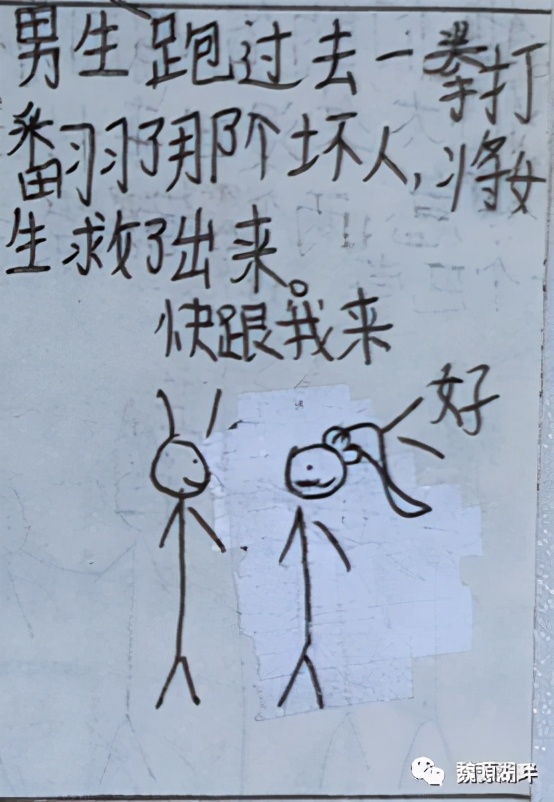 男生跑过去一拳打
翻了那个坏人,将女
生救了出来。
快跟我来
好